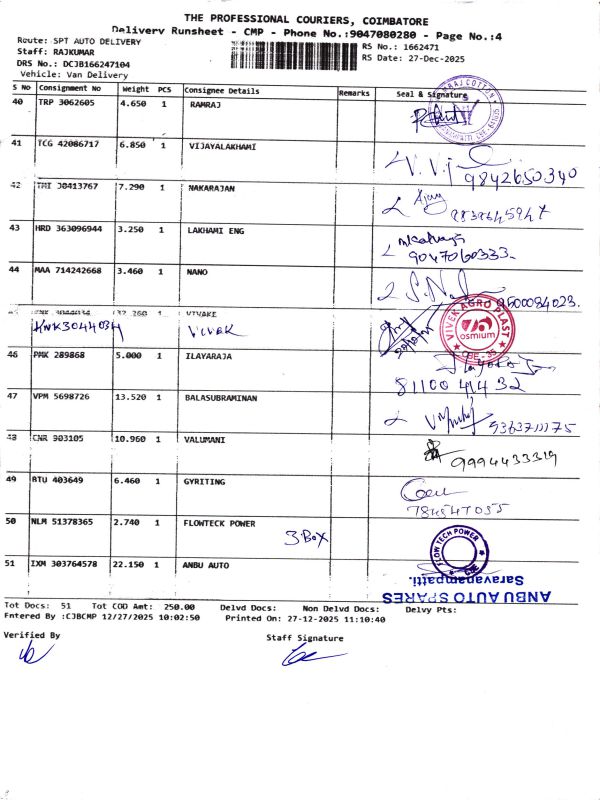 THE PROFESSIONAL COURIERS, COIMBATORE
Delivery Runsheet - CMP - Phone No.:9047080280 - Page No.:4
Route: SPT AUTO DELIVERY
RS No.: 1662471
Staff: RAJKUMAR
RS Date: 27-Dec-2025
DRS No.: DCJB166247104
Vehicle: Van Delivery
S No Consignment No Weight PCS Consignee Details Remarks Seal & Signature
40 TRP 3062605 4.650 1 RAMRAJ
41 TCG 42086717 6.850 1 VIJAYALAKHAMI
9842650340
42 TMI 30413767 7.290 1 NAKARAJAN
Ajay
43 HRD 363096944 3.250 1 LAKHAMI ENG
9047060333
44 MAA 714242668 3.460 1 NANO
9500084023
45 HWK 3044034 32.260 1 VIVAKE
HWK3044034 VIVEK
VIVEK AGRO PLAST
osmium
CBE - 35
46 PMK 289868 5.000 1 ILAYARAJA
8110041432
47 VPM 5698726 13.520 1 BALASUBRAMINAN
48 CNR 903105 10.960 1 VALUMANI
9994433319
49 BTU 403649 6.460 1 GYRITING
50 NLM 51378365 2.740 1 FLOWTECK POWER
3-BOX
FLOW TECH POWER
CBE
51 IXM 303764578 22.150 1 ANBU AUTO
ANBU AUTO SPARES
Saravanampatti.
Tot Docs: 51 Tot COD Amt: 250.00 Delvd Docs: Non Delvd Docs: Delvy Pts:
Entered By :CJBCMP 12/27/2025 10:02:50 Printed On: 27-12-2025 11:10:40
Verified By Staff Signature